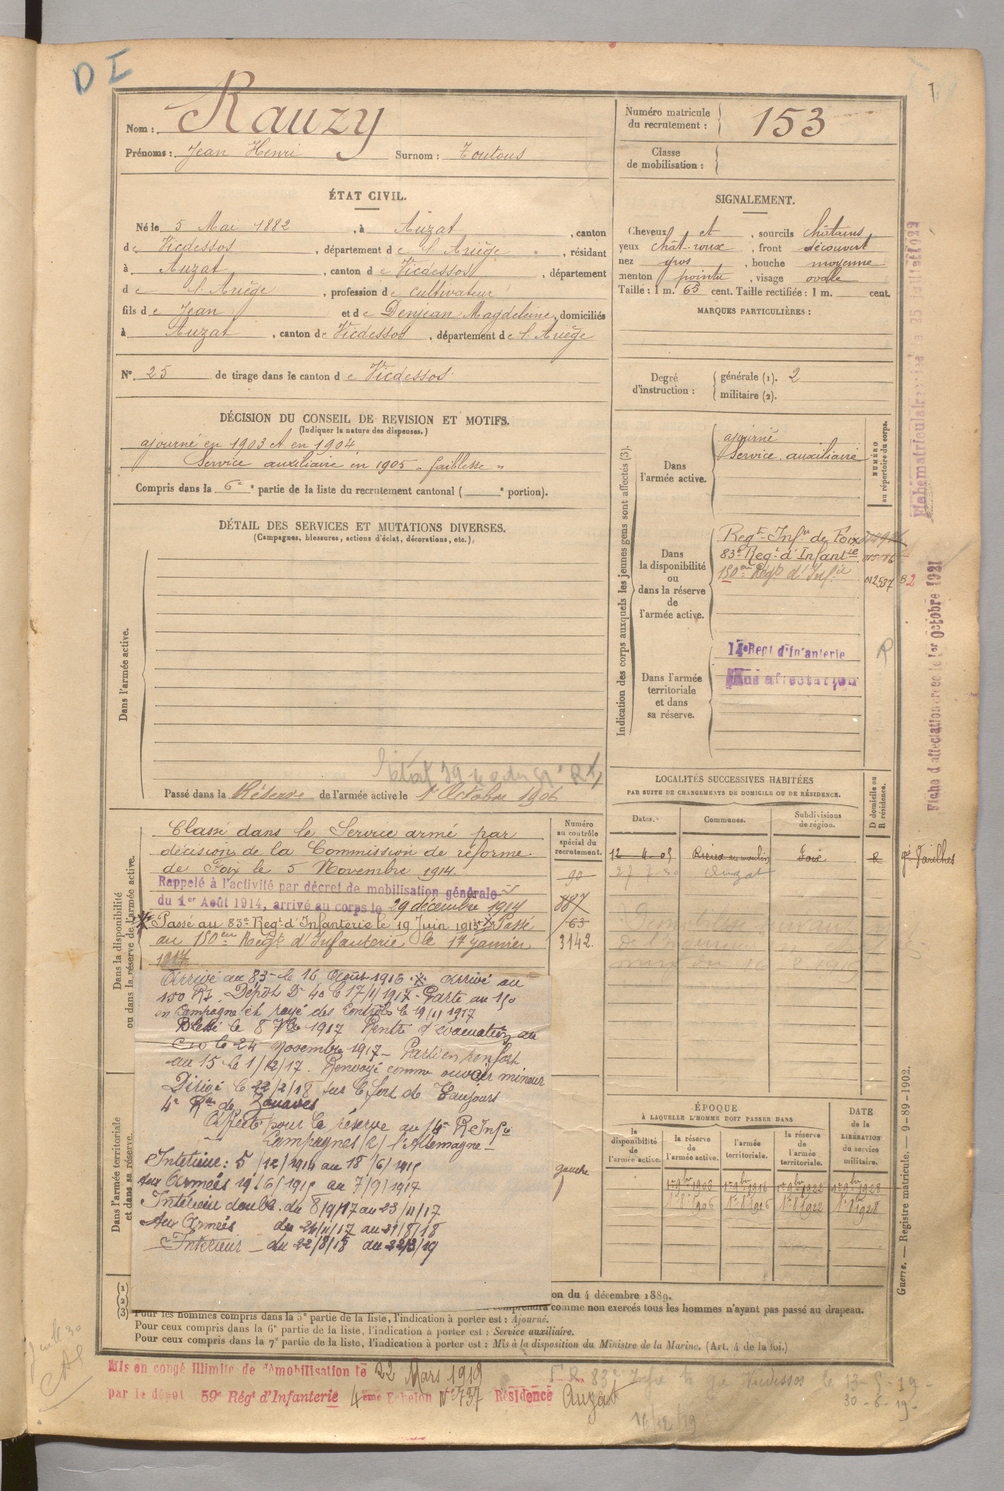 D I
Nom : Rauzy
Prénoms : Jean Henri Surnom : Toutous
Numéro matricule
du recrutement : 153
Classe
de mobilisation :
ÉTAT CIVIL.
Né le 5 Mai 1882, à Auzat, canton
de Vicdessos, département de l'Ariège, résidant
à Auzat, canton de Vicdessos, département
de l'Ariège, profession de cultivateur
fils de Jean et de Denjean Magdeleine, domiciliés
à Auzat, canton de Vicdessos, département de l'Ariège
N° 25 de tirage dans le canton de Vicdessos
SIGNALEMENT.
Cheveux et sourcils châtains
yeux chât-roux, front découvert
nez gros, bouche moyenne
menton pointu, visage ovale
Taille : 1 m. 65 cent. Taille rectifiée : 1 m. cent.
MARQUES PARTICULIÈRES :
Degré
d'instruction :
générale (1). 2
militaire (2).
DÉCISION DU CONSEIL DE REVISION ET MOTIFS.
(Indiquer la nature des dispenses.)
ajourné en 1903 et en 1904
Service auxiliaire en 1905 "faiblesse"
Compris dans la 6e partie de la liste du recrutement cantonal ( e portion).
DÉTAIL DES SERVICES ET MUTATIONS DIVERSES.
(Campagnes, blessures, actions d'éclat, décorations, etc.)
Dans l'armée active.
Passé dans la Réserve de l'armée active le 1er Octobre 1906
Indication des corps auxquels les jeunes gens sont affectés (3).
NUMÉRO
au répertoire du corps.
Dans
l'armée active.
ajourné
Service auxiliaire
Dans
la disponibilité
ou
dans la réserve
de
l'armée active.
Regt Infie de Foix
83e Regt d'Infantie
150e Regt d'Infie
Dans l'armée
territoriale
et dans
sa réserve.
14e Regt d'Infanterie
Sans affectation
R
LOCALITÉS SUCCESSIVES HABITÉES
PAR SUITE DE CHANGEMENTS DE DOMICILE OU DE RÉSIDENCE.
Dates. Communes. Subdivisions
de région. D domicile ou
R résidence.
12-4-05 Foix R
Auzat
Dans la disponibilité
ou dans la réserve de l'armée active.
Numéro
au contrôle
spécial du
recrutement.
Classé dans le Service armé par
décision de la Commission de réforme
de Foix le 5 Novembre 1914.
Rappelé à l'activité par décret de mobilisation générale
du 1er Août 1914, arrivé au corps le 29 décembre 1914
Passé au 83e Regt d'Infanterie le 19 Juin 1915 Passé
au 150eme Regt d'Infanterie le 17 janvier
1917
90
3142
Arrivé au 83e le 16 Août 1916 arrivé au
150 RI. Dépôt D 40 le 17/1/1917 - Parti au 150
en campagne et rayé des contrôles le
Blessé le 8 7bre 1917
le 24 Novembre 1917 - Parti en renfort
au 15 le 1/12/17. Renvoyé comme ouvrier mineur
Dirigé le 22/2/18 sur le fort de Vaujours
4e Rt de Zouaves
Affecté pour la réserve au 14e R. Infie
Campagnes (2) d'Allemagne
Intérieur : 5/12/1914 au 18/6/1915
Aux Armées 19/6/1915 au 7/9/1917
Intérieur double du 8/9/17 au 23/11/17
Aux Armées du 24/11/17 au 21/8/18
Intérieur du 22/8/18 au 22/3/19
gauche
Dans l'armée territoriale
et dans sa réserve.
ÉPOQUE
À LAQUELLE L'HOMME DOIT PASSER DANS
DATE
DE LA
LIBÉRATION
du service
militaire.
la
disponibilité
de
l'armée active.
la réserve
de
l'armée active.
l'armée
territoriale.
la réserve
de l'armée
territoriale.
(1)
(2)
(3)
on du 4 décembre 1889.
comprendra comme non exercés tous les hommes n'ayant pas passé au drapeau.
Pour les hommes compris dans la 5e partie de la liste, l'indication à porter est : Ajourné.
Pour ceux compris dans la 6e partie de la liste, l'indication à porter est : Service auxiliaire.
Pour ceux compris dans la 7e partie de la liste, l'indication à porter est : Mis à la disposition du Ministre de la Marine. (Art. 4 de la foi.)
Mis en congé illimité de démobilisation le 22 Mars 1919
par le dépôt 59e Rég' d'Infanterie 4eme Echelon N° 737 Résidence Auzat
13-5-19
30-6-19
16/12/19
Guerre. — Registre matricule. — 9-89-1902.
Fiche d'affectation créée le 1er octobre 1921